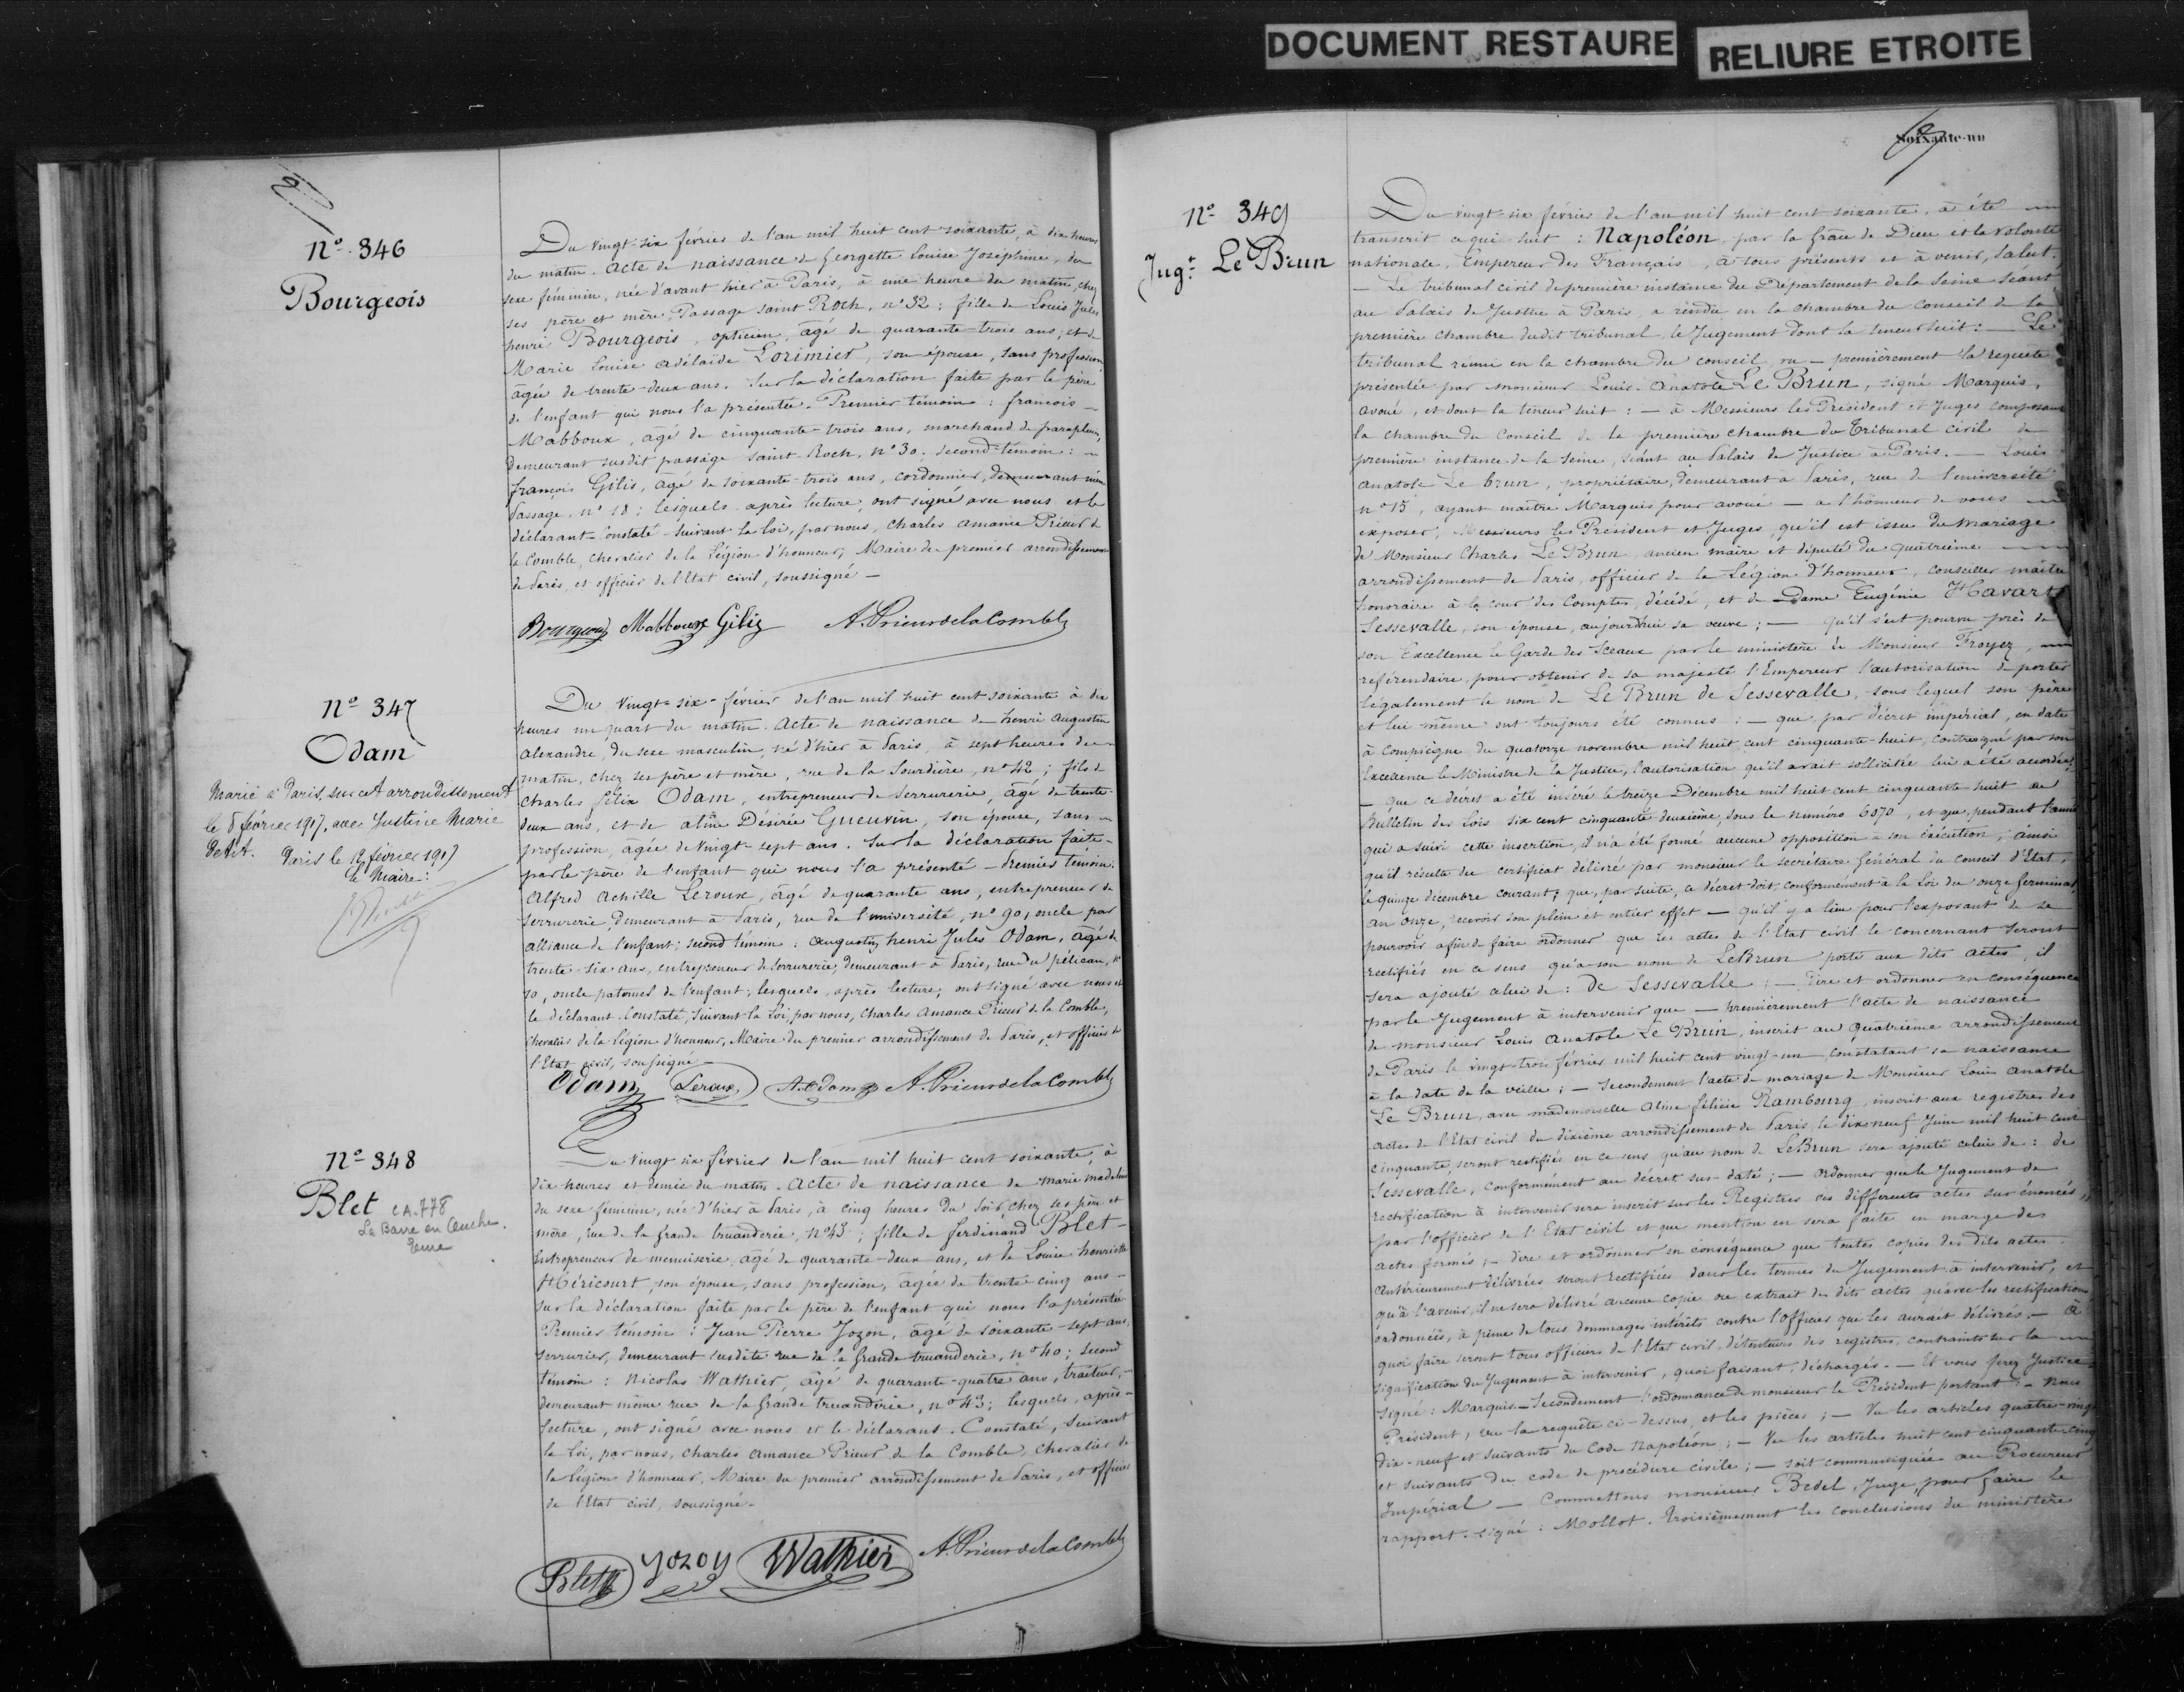 DOCUMENT RESTAURE
RELIURE ETROITE
N° 346
Bourgeois
Du vingt-six février de l'an mil huit cent soixante, à dix heures
du matin. Acte de naissance de Georgette Louise Joséphine, du
sexe féminin, née d'avant hier à Paris, à une heure du matin, chez
ses père et mère, Passage Saint Roch, n° 32 ; fille de Louis Jules
henri Bourgeois, opticien, âgé de quarante-trois ans, et de
Marie Louise adélaïde Lorimier, son épouse, sans profession
âgée de trente-deux ans. Sur la déclaration faite par le père
de l'enfant qui nous l'a présentée. Premier témoin : françois
Mabboux, âgé de cinquante-trois ans, marchand de parapluies,
demeurant susdit passage Saint-Roch, n° 30. second témoin :
françois Gilis, âgé de soixante-trois ans, cordonnier, demeurant même
Passage, n° 18 ; lesquels après lecture, ont signé avec nous et le
déclarant. Constaté suivant la loi, par nous, Charles amance Prieur de
la Comble, chevalier de la légion d'honneur, Maire du premier arrondissement
de Paris, et officier de l'Etat civil, soussigné —
Bourgeois Mabboux Gilis A. Prieur de la Comble
N° 347
Odam
Marié à Paris, sur cet arrondissement
le 8 février 1917, avec Justine Marie
Petit. Paris le 12 février 1917
le Maire :
Du Vingt-six février de l'an mil huit cent soixante à dix
heures un quart du matin. Acte de naissance de henri Augustin
alexandre, du sexe masculin, né d'hier à Paris, à sept heures du
matin, chez ses père et mère, rue de la Sourdière, n° 42 ; fils de
Charles félix Odam, entrepreneur de serrurerie, âgé de trente
deux ans, et de aline Désirée Gueuvin, son épouse, sans
profession, âgée de Vingt-sept ans. Sur la déclaration faite
par le père de l'enfant qui nous l'a présenté – Premier témoin :
Alfred Achille Leroux, âgé de quarante ans, entrepreneur de
serrurerie, demeurant à Paris, rue de l'université, n° 90, oncle par
alliance de l'enfant ; second témoin : augustin henri Jules Odam, âgé de
trente-six ans, entrepreneur de serrurerie, demeurant à Paris, rue du pélican, n°
10, oncle paternel de l'enfant ; lesquels, après lecture, ont signé avec nous et
le déclarant. Constaté, suivant la loi, par nous, Charles Amance Prieur de la Comble,
chevalier de la légion d'honneur, Maire du premier arrondissement de Paris, et officier de
l'Etat civil, soussigné –
Odam Leroux A. Odam A. Prieur de la Comble
N° 348
Blet
CA. 778
La Barre en Ouche
Eure
Du vingt six février de l'an mil huit cent soixante, à
dix heures et demie du matin. Acte de naissance de marie madeleine
du sexe féminin, née d'hier à Paris, à cinq heures du soir, chez ses père et
mère, rue de la grande truanderie, n° 43 ; fille de ferdinand Blet
Entrepreneur de menuiserie, âgé de quarante-deux ans, et de Louise henriette
Héricourt, son épouse, sans profession, âgée de trente cinq ans –
Sur la déclaration faite par le père de l'enfant qui nous l'a présentée
Premier témoin : Jean Pierre Jozon, âgé de soixante-sept ans,
serrurier, demeurant susdite rue de la Grande truanderie, n° 40 ; second
témoin : Nicolas Wathier, âgé de quarante-quatre ans, traiteur,
demeurant même rue de la Grande truanderie, n° 43 ; lesquels, après
lecture, ont signé avec nous et le déclarant. Constaté, suivant
la loi, par nous, Charles Amance Prieur de la Comble, Chevalier de
la légion d'honneur, Maire du premier arrondissement de Paris, et officier
de l'Etat civil, soussigné –
Blet Jozon Wathier A. Prieur de la Comble
Soixante-un
N° 349
Jugt Le Brun
Du vingt-six février de l'an mil huit cent soixante, a été
transcrit ce qui suit : Napoléon, par la grâce de Dieu et la volonté
nationale, Empereur des Français, à tous présents et à venir, Salut.
— Le tribunal civil de première instance du Département de la Seine séant
au Palais de Justice à Paris, a rendu en la chambre du Conseil de la
première chambre dudit tribunal le Jugement dont la teneur suit : — Le
tribunal réuni en la chambre du conseil, vu — premièrement la requête
présentée par monsieur Louis Anatole Le Brun, signé Marquis,
avoué, et dont la teneur suit : — à Messieurs les Président et Juges composant
la chambre du Conseil de la première chambre du Tribunal civil de
première instance de la Seine, séant au Palais de Justice à Paris. — Louis
Anatole Le brun, propriétaire, demeurant à Paris, rue de l'université
n° 15, ayant maître Marquis pour avoué — a l'honneur de vous
exposer, Messieurs les Président et Juges, qu'il est issu du mariage
de Monsieur Charles Le Brun, ancien maire et député du quatrième
arrondissement de Paris, officier de la légion d'honneur, conseiller maître
honoraire à la cour des Comptes, décédé, et de Dame Eugénie Havart
Sessevalle, son épouse, aujourd'hui sa veuve ; — qu'il s'est pourvu près de
son Excellence le Garde des Sceaux par le ministère de Monsieur Froyez,
référendaire, pour obtenir de sa majesté l'Empereur l'autorisation de porter
légalement le nom de Le Brun de Sessevalle, sous lequel son père
et lui même ont toujours été connus ; — que par décret impérial, en date
à Compiègne du quatorze novembre mil huit cent cinquante-huit, contresigné par son
Excellence le Ministre de la Justice, l'autorisation qu'il avait sollicitée lui a été accordée ;
— que ce décret a été inséré le treize Décembre mil huit cent cinquante huit au
Bulletin des Lois six cent cinquante deuxième, sous le numéro 6070, et que, pendant l'année
qui a suivi cette insertion, il n'a été formé aucune opposition à son exécution, ainsi
qu'il résulte du certificat délivré par monsieur le secrétaire Général du conseil d'Etat,
le quinze décembre courant ; que, par suite, ce décret doit, conformément à la Loi du onze Germinal
an onze, recevoir son plein et entier effet — qu'il y a lieu pour l'exposant de se
pourvoir afin de faire ordonner que les actes de l'Etat civil le concernant seront
rectifiés en ce sens qu'à son nom de LeBrun porté aux dits actes, il
sera ajouté celui de : De Sessevalle ; — Dire et ordonner en conséquence
par le Jugement à intervenir que — premièrement l'acte de naissance
de monsieur Louis Anatole Le Brun, inscrit au quatrième arrondissement
de Paris le vingt-trois février mil huit cent vingt-un constatant sa naissance
à la date de la veille ; — secondement l'acte de mariage de Monsieur Louis Anatole
Le Brun, avec mademoiselle Aline félicie Rambourg, inscrit aux registres des
actes de l'Etat civil du dixième arrondissement de Paris, le dix-neuf Juin mil huit cent
cinquante, seront rectifiés en ce sens qu'au nom de LeBrun sera ajouté celui de : de
Sessevalle, conformément au décret sus-daté ; — ordonner que le Jugement de
rectification à intervenir sera inscrit sur les Registres des différents actes sus-énoncés,
par l'officier de l'Etat civil et que mention en sera faite en marge des
actes formés ; — dire et ordonner en conséquence que toutes copies des dits actes
antérieurement délivrées seront rectifiées dans les termes du Jugement à intervenir, et
qu'à l'avenir, il ne sera délivré aucune copie ou extrait des dits actes qu'avec les rectifications
ordonnées, à peine de tous dommages intérêts contre l'officier que les aurait délivrés. — à
quoi faire seront tous officiers de l'Etat civil, détenteurs des registres, contraints sur la
signification du Jugement à intervenir, quoi faisant, déchargés. — Et vous ferez Justice
signé : Marquis. — Secondement l'ordonnance de monsieur le Président portant : — Nous
Président, vu la requête ci-dessus, et les pièces ; — Vu les articles quatre-vingt
dix-neuf et suivants du Code Napoléon ; — Vu les articles huit cent cinquante-cinq
et suivants du code de procédure civile ; — soit communiquée au Procureur
Impérial — Commettons monsieur Bedel, Juge, pour faire le
rapport. Signé : Mollot. Troisièmement les conclusions du ministère